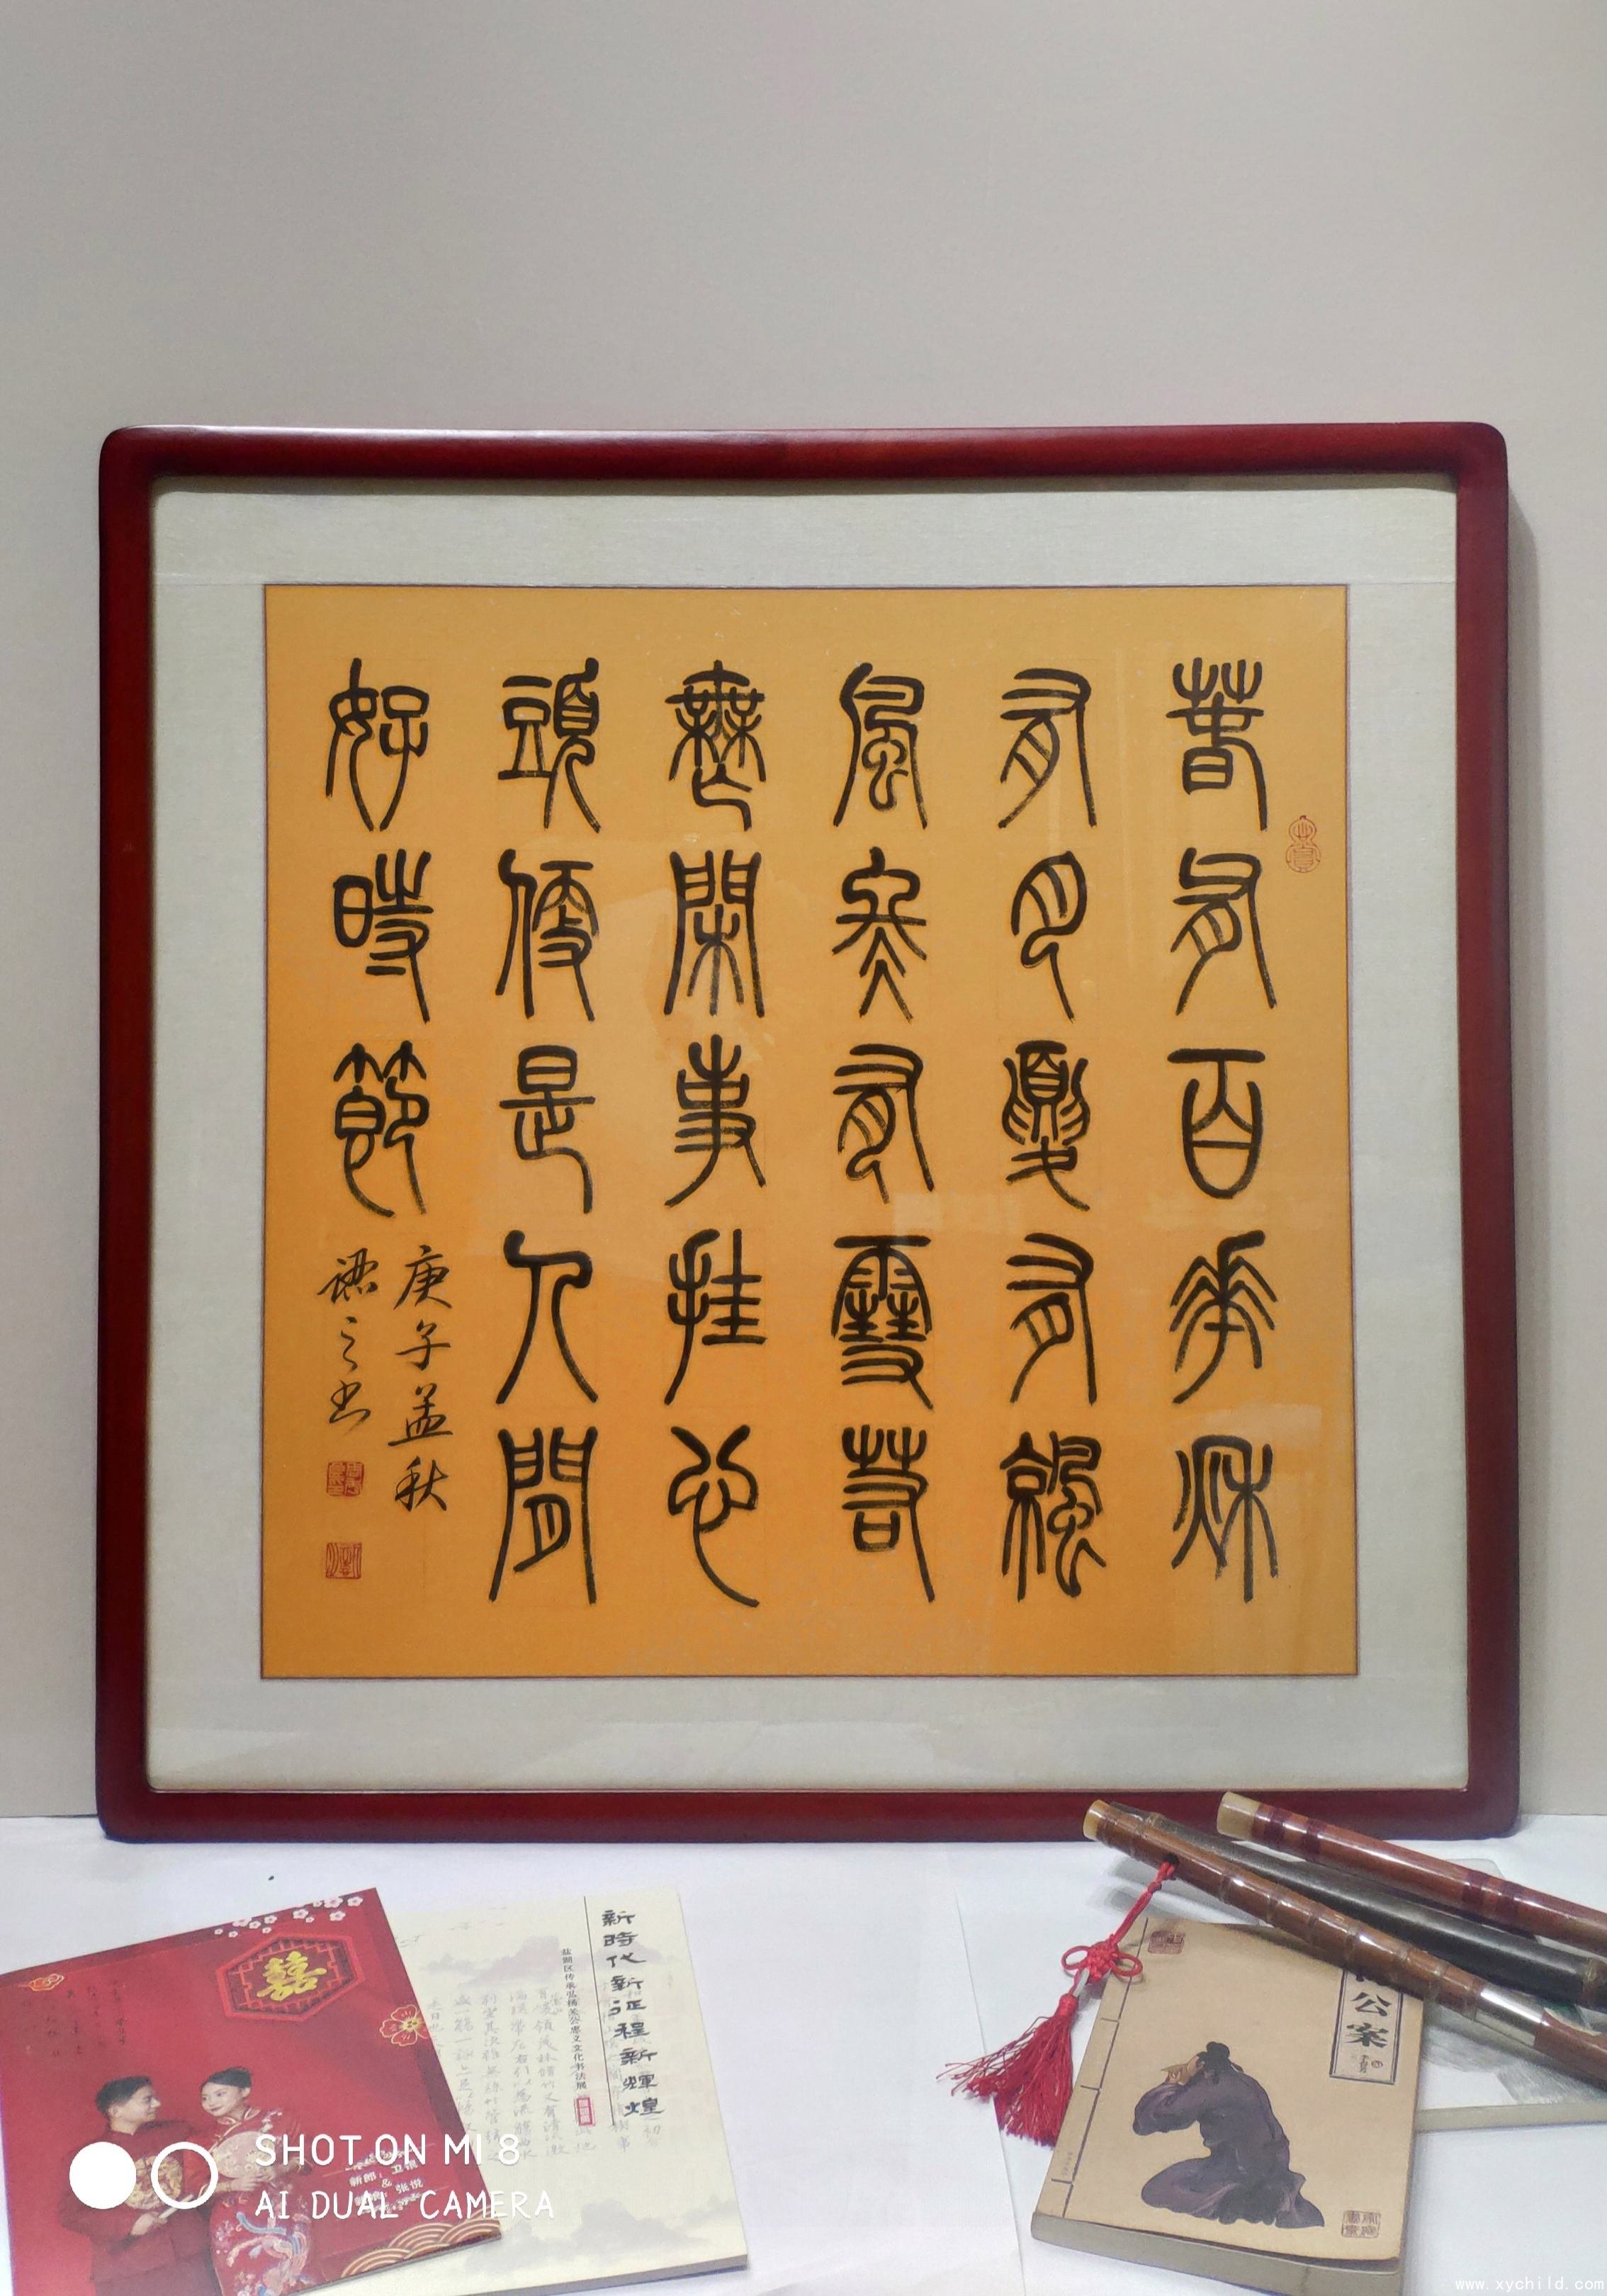 春有百花秋
有月夏有涼
風冬有雪若
無閑事挂心
頭便是人間
好時節
庚子孟秋
之书
囍
新時代新征程新輝煌
盐湖区传承弘扬关公忠义文化书法展
公案
新郎：卫
张悦
SHOT ON MI 8
AI DUAL CAMERA
www.xychild.com